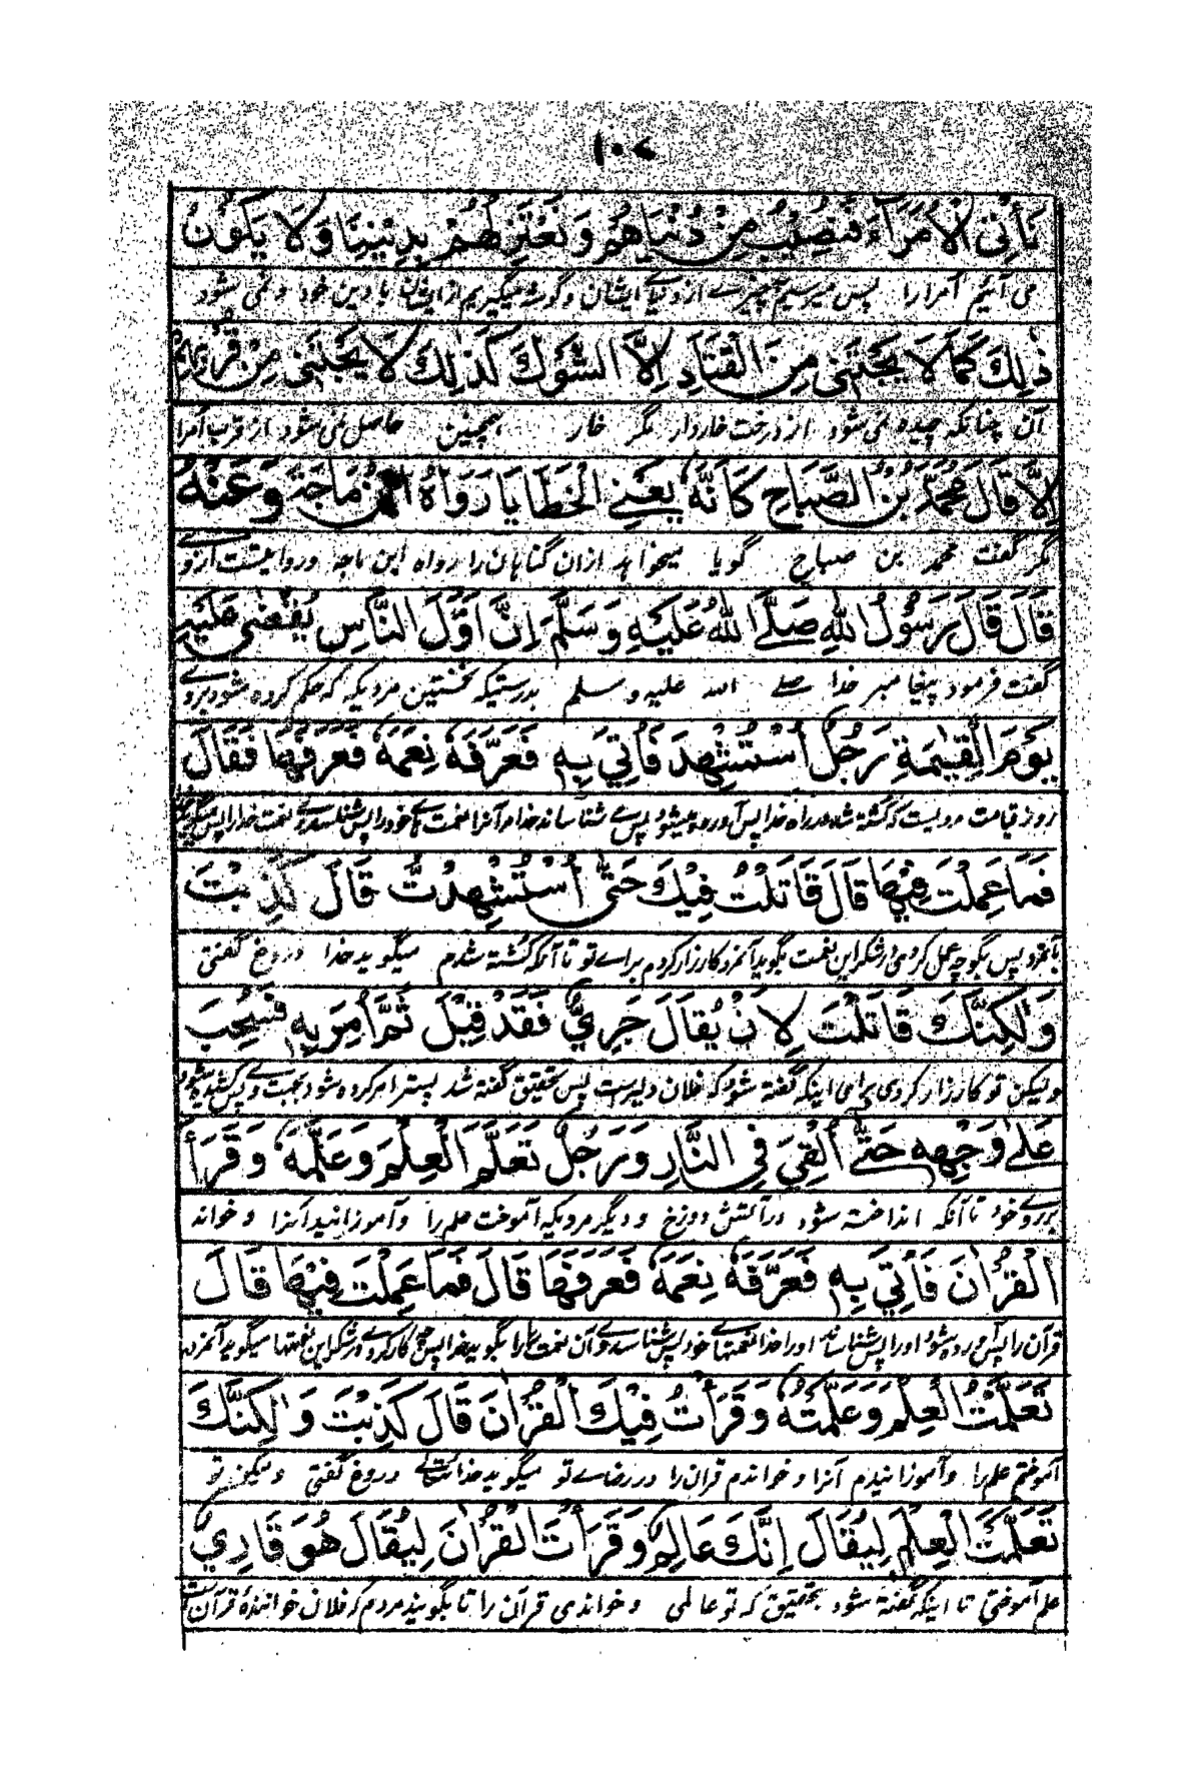 ۱۰۷
نَأْتِى الْأُمَرَآءَ فَنُصِيْبُ مِنْ دُنْيَاهُمْ وَنَعْتَزِلُهُمْ بِدِيْنِنَا وَلَا يَكُوْنُ
می آئیم امرا را پس میرسیم چیزے از دنیاے ایشان و گوشه میگیریم از ایشان با دین خود و نمی شود
ذٰلِكَ كَمَا لَا يُجْتَنٰى مِنَ الْقَتَادِ اِلَّا الشَّوْكُ كَذٰلِكَ لَا يُجْتَنٰى مِنْ قُرْبِهِمْ
آن چنانکه چیده نمی شود از درخت خاردار مگر خار همچنین حاصل نمی شود از قرب امرا
اِلَّا قَالَ مُحَمَّدُ بْنُ الصَّبَاحِ كَاَنَّهٗ يَعْنِى الْخَطَايَا رَوَاهُ ابْنُ مَاجَةَ وَعَنْهُ
مگر گفت محمد بن صباح گویا میخواهد ازان گناهان را رواه ابن ماجه و روایتست از وے
قَالَ قَالَ رَسُوْلُ اللّٰهِ صَلَّى اللّٰهُ عَلَيْهِ وَسَلَّمَ اِنَّ اَوَّلَ النَّاسِ يُقْضٰى عَلَيْهِ
گفت فرمود پیغامبر خدا صلے الله علیه و سلم بدرستیکه نخستین مردیکه که حکم کرده شود بروے
يَوْمَ الْقِيٰمَةِ رَجُلٌ اُسْتُشْهِدَ فَاُتِيَ بِهٖ فَعَرَّفَهٗ نِعَمَهٗ فَعَرَفَهَا فَقَالَ
روز قیامت مردیست که کشته شد در راه خدا پس آورده میشود پس شناساند خدا مر آنرا نعمت هاے خود را پس شناسد وے نعمت خدا را پس میگوید
فَمَا عَمِلْتَ فِيْهَا قَالَ قَاتَلْتُ فِيْكَ حَتّٰى اُسْتُشْهِدْتُ قَالَ كَذَبْتَ
بآنمرد پس بگو چه عمل کردی در شکر این نعمت بگوید آنمرد کارزار کردم براے تو تا آنکه کشته شدم میگوید خدا دروغ گفتی
وَلٰكِنَّكَ قَاتَلْتَ لِاَنْ يُقَالَ جَرِيٌّ فَقَدْ قِيْلَ ثُمَّ اُمِرَ بِهٖ فَسُحِبَ
ولیکن تو کارزار کردی برای اینکه گفته شود که فلان دلیرست پس بتحقیق گفته شد پستر امر کرده شود بجهت وے پس کشیده شود
عَلٰى وَجْهِهٖ حَتّٰى اُلْقِيَ فِى النَّارِ وَرَجُلٌ تَعَلَّمَ الْعِلْمَ وَعَلَّمَهٗ وَقَرَأَ
بر روے خود تا آنکه انداخته شود در آتش دوزخ و دیگر مردیکه آموخت علم را و آموزانید آنرا و خواند
الْقُرْاٰنَ فَاُتِيَ بِهٖ فَعَرَّفَهٗ نِعَمَهٗ فَعَرَفَهَا قَالَ فَمَا عَمِلْتَ فِيْهَا قَالَ
قرآن را پس آورده شود او را پس شناساند او را خدا نعمتهاے خود پس شناسد وے آن نعمت را بگوید خدا پس چه کار کردے در شکر این نعمتها میگوید آنمرد
تَعَلَّمْتُ الْعِلْمَ وَعَلَّمْتُهٗ وَقَرَأْتُ فِيْكَ الْقُرْاٰنَ قَالَ كَذَبْتَ وَلٰكِنَّكَ
آموختم علم را و آموزانیدم آنرا و خواندم قرآن را در رضاے تو میگوید خدا دروغ گفتی ولیکن تو
تَعَلَّمْتَ الْعِلْمَ لِيُقَالَ اِنَّكَ عَالِمٌ وَقَرَأْتَ الْقُرْاٰنَ لِيُقَالَ هُوَ قَارِئٌ
علم آموختی تا اینکه گفته شود بتحقیق که تو عالمی و خواندی قرآن را تا بگویند مردم که فلان خوانندهٔ قرآن ست